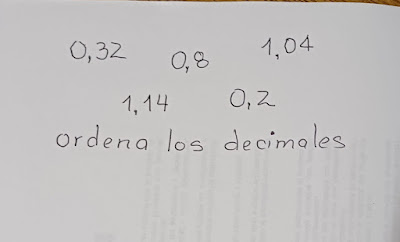 0,32 0,8 1,04
1,14 0,2
ordena los decimales